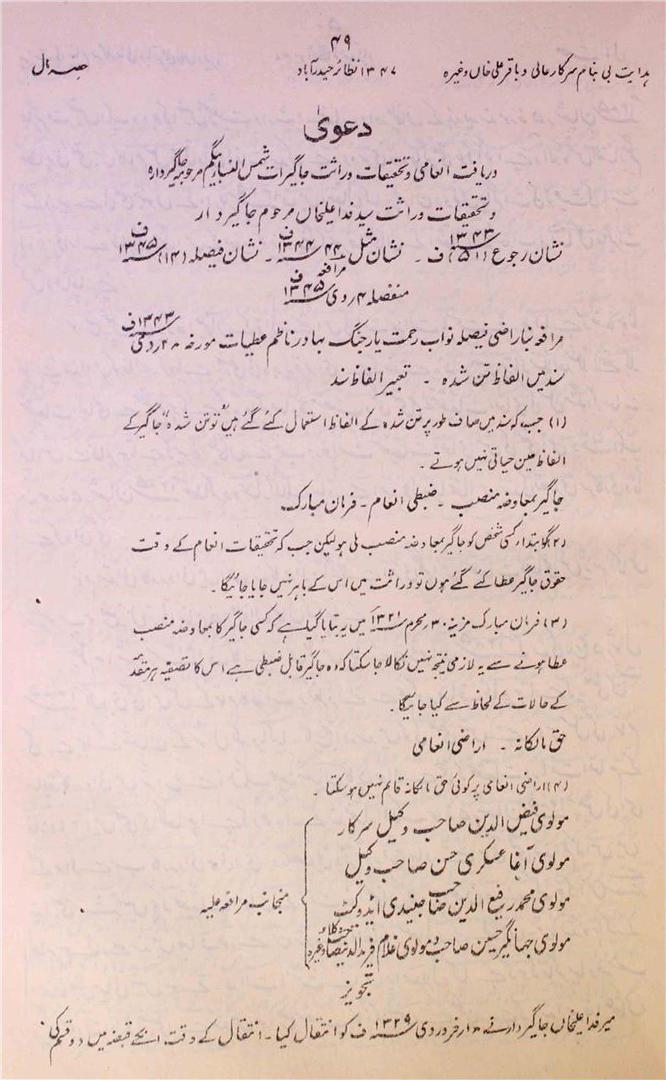 ۴۹
ہدایت بی بنام سرکار عالی و باقر علی خاں وغیرہ ۱۳۴۷ نظائر حیدرآباد حصہ اول
دعویٰ
دریافت انعامی و تحقیقات وراثت جاگیرات شمس النساء بیگم مرحومہ جاگیردارہ
و تحقیقات وراثت سید فدا علیخاں مرحوم جاگیردار
نشان رجوع (۵۱) ۱۳۴۳ف ۔ نشان مثل ۴۴ ۱۳۴۴ف ۔ نشان فیصلہ (۱۴) ۱۳۴۵ف
مرافعہ
منفصلہ ۴ردی ۱۳۴۵ف
مرافعہ بناراضی فیصلہ نواب رحمت یار جنگ بہادر ناظم عطیات مورخہ ۲۸ردی ۱۳۴۳ف
سند میں الفاظ تن شدہ ۔ تعبیر الفاظ سند
(۱) جب کہ سند میں صاف طور پر تن شدہ کے الفاظ استعمال کئے گئے ہیں تو "تن شدہ" جاگیر کے
الفاظ حین حیاتی نہیں ہوتے ۔
جاگیر بمعاوضہ منصب ۔ ضبطی انعام ۔ فرمان مبارک ۔
(۲) گو ابتداءً کسی شخص کو جاگیر بمعاوضہ منصب ملی ہو لیکن جب کہ تحقیقات انعام کے وقت
حقوق جاگیر عطا کئے گئے ہوں تو وراثت میں اس کے باہر نہیں جایا جائیگا ۔
(۳) فرمان مبارک مزینہ ۳۰ ر محرم ۱۳۲۱ میں یہ بتایا گیا ہے کہ کسی جاگیر کا بمعاوضہ منصب
عطا ہونے سے یہ لازمی نتیجہ نہیں نکالا جا سکتا کہ وہ جاگیر قابل ضبطی ہے اس کا تصفیہ ہر مقدمہ
کے حالات کے لحاظ سے کیا جائیگا ۔
حق مالکانہ ۔ اراضی انعامی
(۴) اراضی انعامی پر کوئی حق مالکانہ قائم نہیں ہو سکتا ۔
مولوی فیض الدین صاحب وکیل سرکار
مولوی آغا عسکری حسن صاحب وکیل
مولوی محمد رفیع الدین صاحب جنیدی ایڈوکیٹ
منجانب مرافعہ علیہ
مولوی جہانگیر حسین صاحب و مولوی غلام فرید الدین صاحب وغیرہ وکلاء
تجویز
میر فدا علیخاں جاگیردار نے ۱۰ر فروردی ۱۳۲۹ف کو انتقال کیا ۔ انتقال کے وقت انکے قبضہ میں دو قسم کی